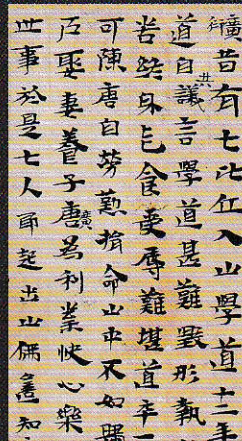 昔有七比丘入山學道十二年
道自共議言學道甚難毀形執
苦終身乞食受辱難堪道卒
可陳唐自勞懃損命山中不如歸
戶娶妻養子唐廣為利業快心樂
事於是七人即起出山佛知